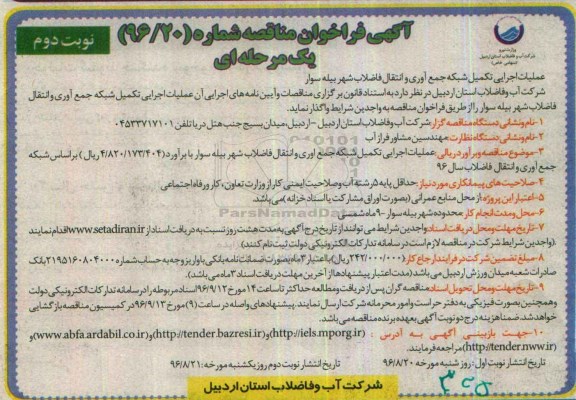 آگهی فراخوان مناقصه شماره (۹۶/۲۰)
یک مرحله ای
نوبت دوم
وزارت نیرو
شرکت آب و فاضلاب استان اردبیل
(سهامی خاص)
عملیات اجرایی تکمیل شبکه جمع آوری و انتقال فاضلاب شهر بیله سوار
شرکت آب وفاضلاب استان اردبیل در نظر دارد به استناد قانون برگزاری مناقصات و آیین نامه های اجرایی آن عملیات اجرایی تکمیل شبکه جمع آوری و انتقال
فاضلاب شهر بیله سوار را از طریق فراخوان مناقصه به واجدین شرایط واگذار نماید.
۱-نام ونشانی دستگاه مناقصه گزار: شرکت آب وفاضلاب استان اردبیل -اردبیل، میدان بسیج جنب هتل دریا تلفن ۰۴۵۳۳۷۱۷۱۰۱
۲-نام ونشانی دستگاه نظارت: مهندسین مشاور فراز آب
۳-موضوع مناقصه وبرآورد ریالی: عملیات اجرایی تکمیل شبکه جمع آوری و انتقال فاضلاب شهر بیله سوار با برآورد (۴/۸۲۰/۱۷۳/۴۰۴ ریال) بر اساس شبکه
جمع آوری و انتقال فاضلاب سال ۹۶
۴-صلاحیت های پیمانکاری مورد نیاز: حداقل پایه ۵ رشته آب وصلاحیت ایمنی کار از وزارت تعاون، کار ورفاه اجتماعی
۵-اعتبار این پروژه: از محل منابع عمرانی (بصورت اوراق مشارکت یا اسناد خزانه) می باشد
۶-محل ومدت انجام کار: محدوده شهر بیله سوار -۹ ماه شمسی
۷-تاریخ مهلت ومحل دریافت اسناد: واجدین شرایط می توانند از تاریخ درج آگهی به مدت هشت روز نسبت به دریافت اسناد از www.setadiran.ir اقدام نمایند
(واجدین شرایط شرکت در مناقصه لازم است در سامانه تدارکات الکترونیکی دولت ثبت نام کنند).
۸-مبلغ تضمین شرکت در فرایند ارجاع کار: (۲۴۲/۰۰۰/۰۰۰) ریال با اعتبار ۳ ماه بصورت ضمانتنامه بانکی یا واریز وجه به حساب شماره ۲۱۹۵۱۶۰۸۰۴۰۰۰ بانک
صادرات شعبه میدان ورزش اردبیل می باشد (مدت اعتبار پیشنهادها از آخرین مهلت دریافت اسناد ۳ ماه می باشد).
۹-تاریخ مهلت ومحل تحویل اسناد: مناقصه گران پس از دریافت ومطالعه حداکثر تا ساعت ۱۴ مورخ ۹۶/۹/۱۲ اسناد مربوطه را در سامانه تدارکات الکترونیکی دولت
وهمچنین بصورت فیزیکی به دفتر حراست وامور محرمانه شرکت ارسال نمایند. پیشنهادهای واصله در ساعت (۹) مورخ ۹۶/۹/۱۳ در کمیسیون مناقصه بازگشایی
خواهد شد. ضمنا هزینه درج دو نوبت آگهی بعهده برنده مناقصه می باشد.
۱۰-جهت بازبینی آگهی به آدرس: (http://iels.mporg.ir) و (http://tender.bazresi.ir) و (www.abfa.ardabil.co.ir) و
(http://tender.nww.ir) مراجعه فرمایند.
تاریخ انتشار نوبت اول: روز شنبه مورخه ۹۶/۸/۲۰ تاریخ انتشار نوبت دوم روز یکشنبه مورخه: ۹۶/۸/۲۱
شرکت آب وفاضلاب استان اردبیل